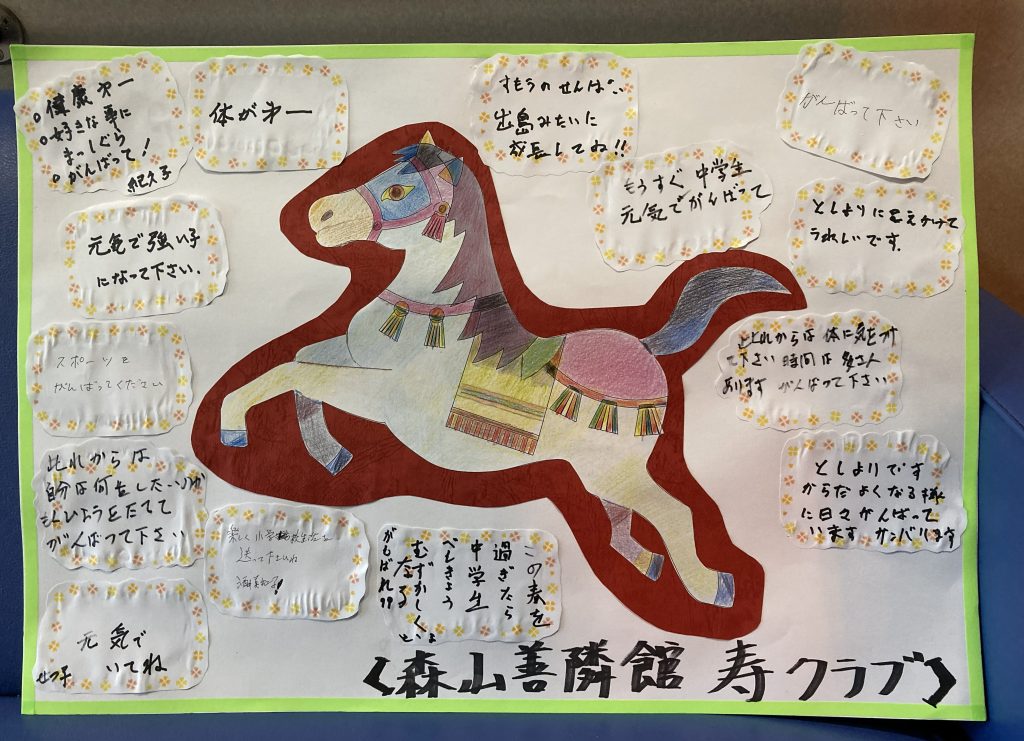 健康第一
好きな事に
まっしぐら
がんばって!
紀久子
体が第一
すもうのせんぱい
出島みたいに
成長してね!!
がんばって下さい
元気で強い子
になって下さい.
もうすぐ中学生
元気でがんばって
としよりに
うれしいです.
スポーツを
がんばってください
これからは体に気をつけ
て下さい時間は多さん
あります がんばって下さい
此れからは
自分は何をしたいのか
がんばって下さい
としよりです
からだよくなる様
に日々がんばって
います ガンバリます
楽しく小学校生活を
送って下さいね
この春を
過ぎたら
中学生
べんきょう
むずかしく
なる
がんばれ!!
元気で
いてね
せつ子
【森山善隣館 寿クラブ】